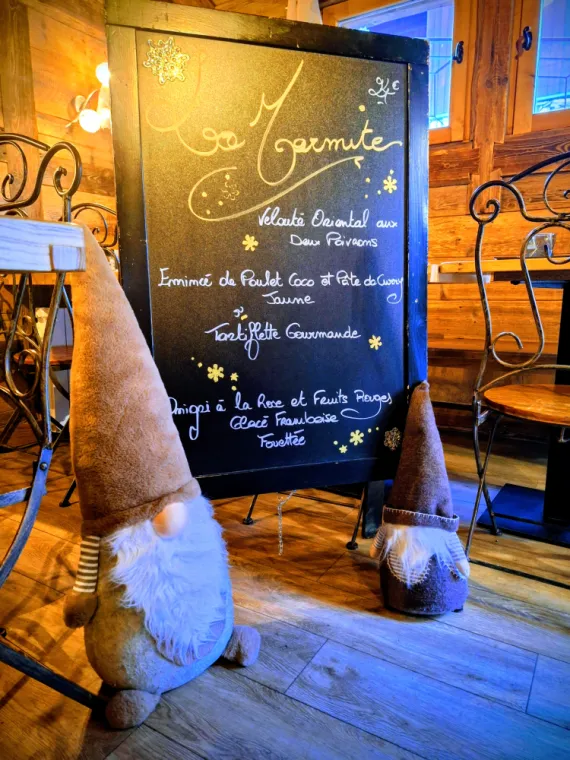 La Marmite
24€
Velouté Oriental aux
Deux Poivrons
Emincé de Poulet Coco et Pâte de Curry
Jaune
ou
Tartiflette Gourmande
à la Rose et Fruits Rouges
Glace Framboise
Fouettée